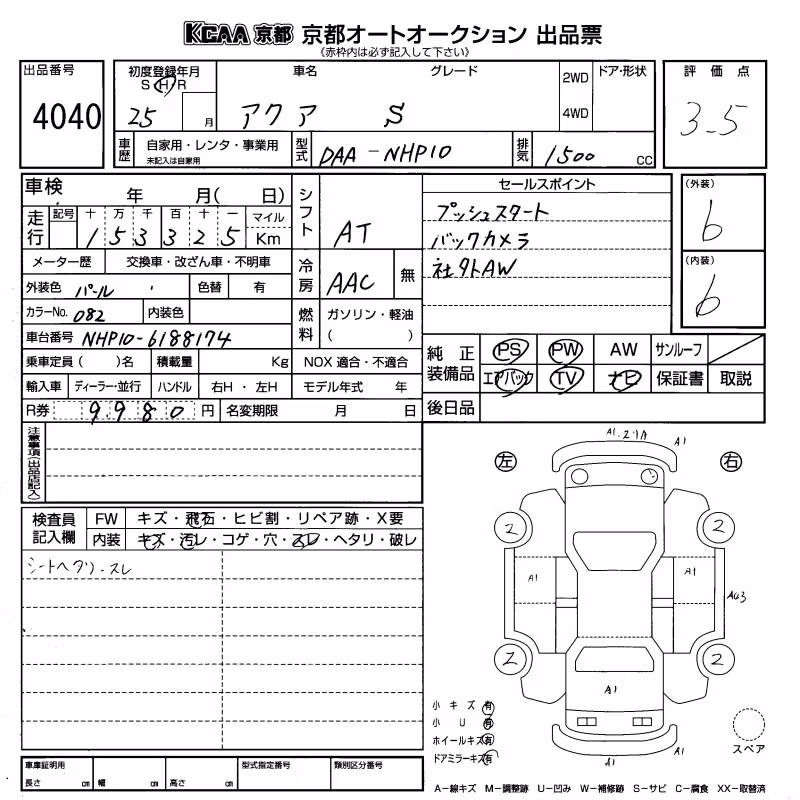 KCAA 京都 京都オートオークション 出品票
《赤枠内は必ず記入して下さい》
出品番号 4040
初度登録年月 S H R 25 月
車名 アクア グレード S
2WD 4WD ドア・形状
評価点 3.5
車歴 自家用・レンタ・事業用 未記入は自家用
型式 DAA-NHP10 排気 1500 CC
車検 年 月( 日)
走行 記号 十 万 千 百 十 一 マイル Km
153325
メーター歴 交換車・改ざん車・不明車
外装色 パール 色替 有
カラーNo. 082 内装色
車台番号 NHP10-6188174
乗車定員 ( )名 積載量 Kg NOX 適合・不適合
輸入車 ディーラー・並行 ハンドル 右H・左H モデル年式 年
R券 9980 円 名変期限 月 日
シフト AT
冷房 AAC 無
燃料 ガソリン・軽油 ( )
セールスポイント
プッシュスタート
バックカメラ
社外AW
(外装) 6
(内装) 6
純正装備品 PS PW AW サンルーフ
エアバック TV ナビ 保証書 取説
後日品
注意事項(出品店記入)
検査員記入欄 FW キズ・飛石・ヒビ割・リペア跡・X要
内装 キズ・汚レ・コゲ・穴・スレ・ヘタリ・破レ
シートヘタリ・スレ
左 右
A1 A1
2 2
A1 A1
2 2
A1
A1 A1
小キズ 有
小U 有
ホイールキズ 有
ドアミラーキズ 有
スペア
車庫証明用 長さ cm 幅 cm 高さ cm 型式指定番号 類別区分番号
A－線キズ M－調整跡 U－凹み W－補修跡 S－サビ C－腐食 XX－取替済